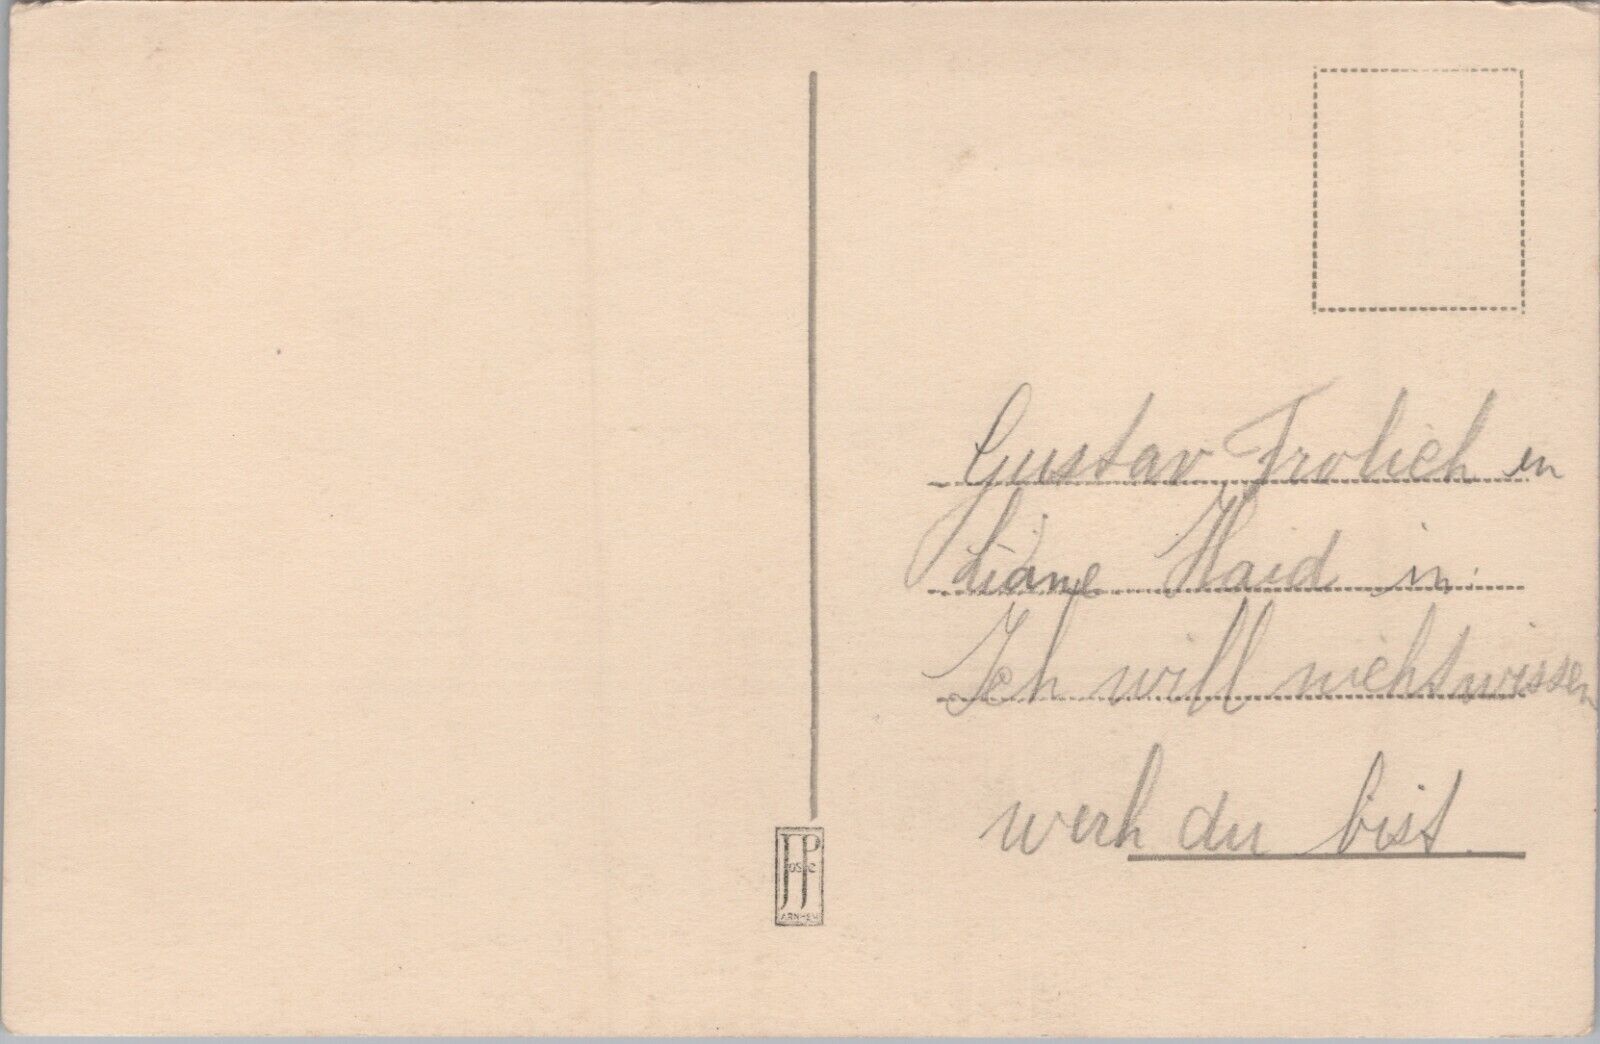 Gustav Frolich en
Liane Haid in:
Ich will nicht wissen
werh du bist.
JP
ARNHEM